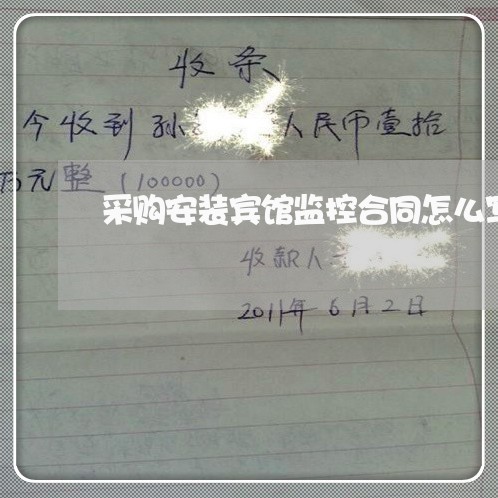 收条
今收到孙 人民币壹拾
万元整(100000)
采购安装宾馆监控合同怎么
收款人
2011年6月2日